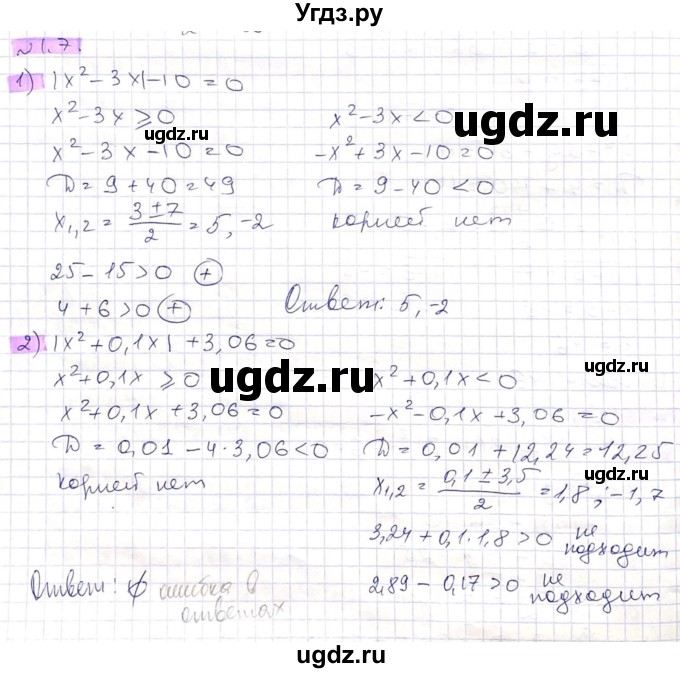 Угдз.ру
№1.7.
1) |x² – 3x| – 10 = 0
x² – 3x ⩾ 0
x² – 3x – 10 = 0
D = 9 + 40 = 49
x₁,₂ = (3 ± 7)/2 = 5, –2
25 – 15 > 0 ⊕
4 + 6 > 0 ⊕
x² – 3x < 0
–x² + 3x – 10 = 0
D = 9 – 40 < 0
корней нет
Ответ: 5, –2
2) |x² + 0,1x| + 3,06 = 0
x² + 0,1x ⩾ 0
x² + 0,1x + 3,06 = 0
D = 0,01 – 4·3,06 < 0
корней нет
x² + 0,1x < 0
–x² – 0,1x + 3,06 = 0
D = 0,01 + 12,24 = 12,25
x₁,₂ = (0,1 ± 3,5)/2 = 1,8 ; –1,7
3,24 + 0,1·1,8 > 0 не подходит
2,89 – 0,17 > 0 не подходит
Ответ: ∅ ошибка в
ответах
ugdz.ru
ugdz.ru
ugdz.ru
ugdz.ru
ugdz.ru
ugdz.ru
ugdz.ru
ugdz.ru